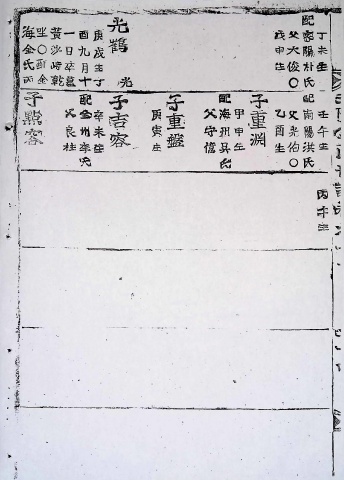 丁未生
配密陽朴氏
父大俊〇
戊申生
光鶴
光
庚戌丁
酉九月十
一日卒墓
黄沙峙乾
坐〇配金
海金氏丙
壬午生
配南陽洪氏
父光佑〇
乙酉生
子重淵
甲申生
配海州吳氏
父守信
子重鑑
庚寅生
子吉容
辛未生
配全州李氏
父良桂
子點容
丙午生